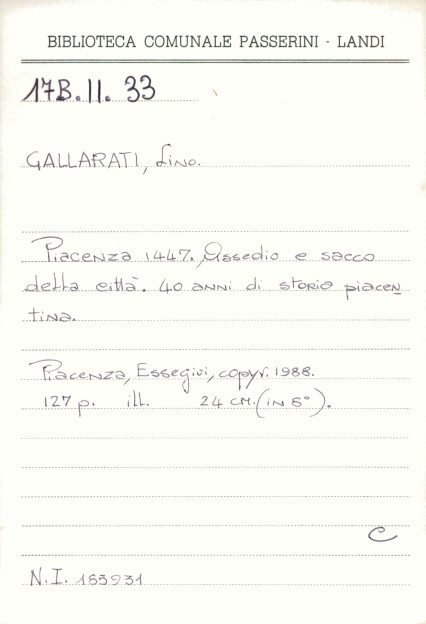 BIBLIOTECA COMUNALE PASSERINI - LANDI
17B.II.33
GALLARATI, Lino.
Piacenza 1447. Assedio e sacco
della città. 40 anni di storia piacen
tina.
Piacenza, Essegivi, copyr. 1988.
127 p. ill. 24 cm. (in 8°).
C
N.I. 183931